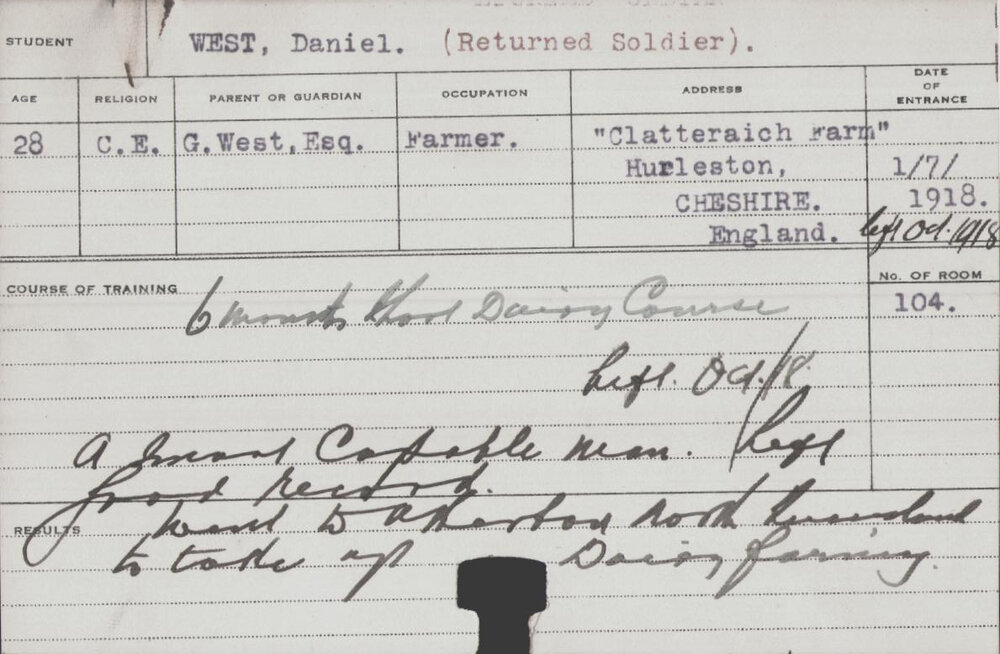 STUDENT WEST, Daniel. (Returned Soldier).
AGE RELIGION PARENT OR GUARDIAN OCCUPATION ADDRESS DATE OF ENTRANCE
28 C.E. G.West, Esq. Farmer. "Clatteraich Farm"
Hurleston, 1/7/
CHESHIRE. 1918.
England. left Oct. 1918
COURSE OF TRAINING 6 months Short Dairy Course
No. OF ROOM
104.
Left. Oct./18.
A most Capable man. Left
good record.
RESULTS Went to Atherton North Queensland
to take up Dairy farming.